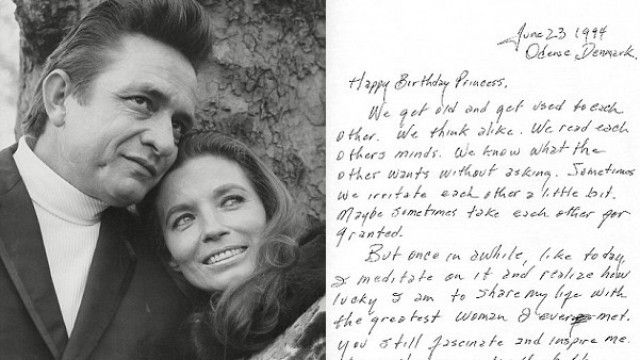 June 23 1994
Odense, Denmark.
Happy Birthday Princess,
We get old and get used to each
other. We think alike. We read each
others minds. We know what the
other wants without asking. Sometimes
we irritate each other a little bit.
Maybe sometimes take each other for
granted.
But once in awhile, like today,
I meditate on it and realize how
lucky I am to share my life with
the greatest woman I ever met.
You still fascinate and inspire me.